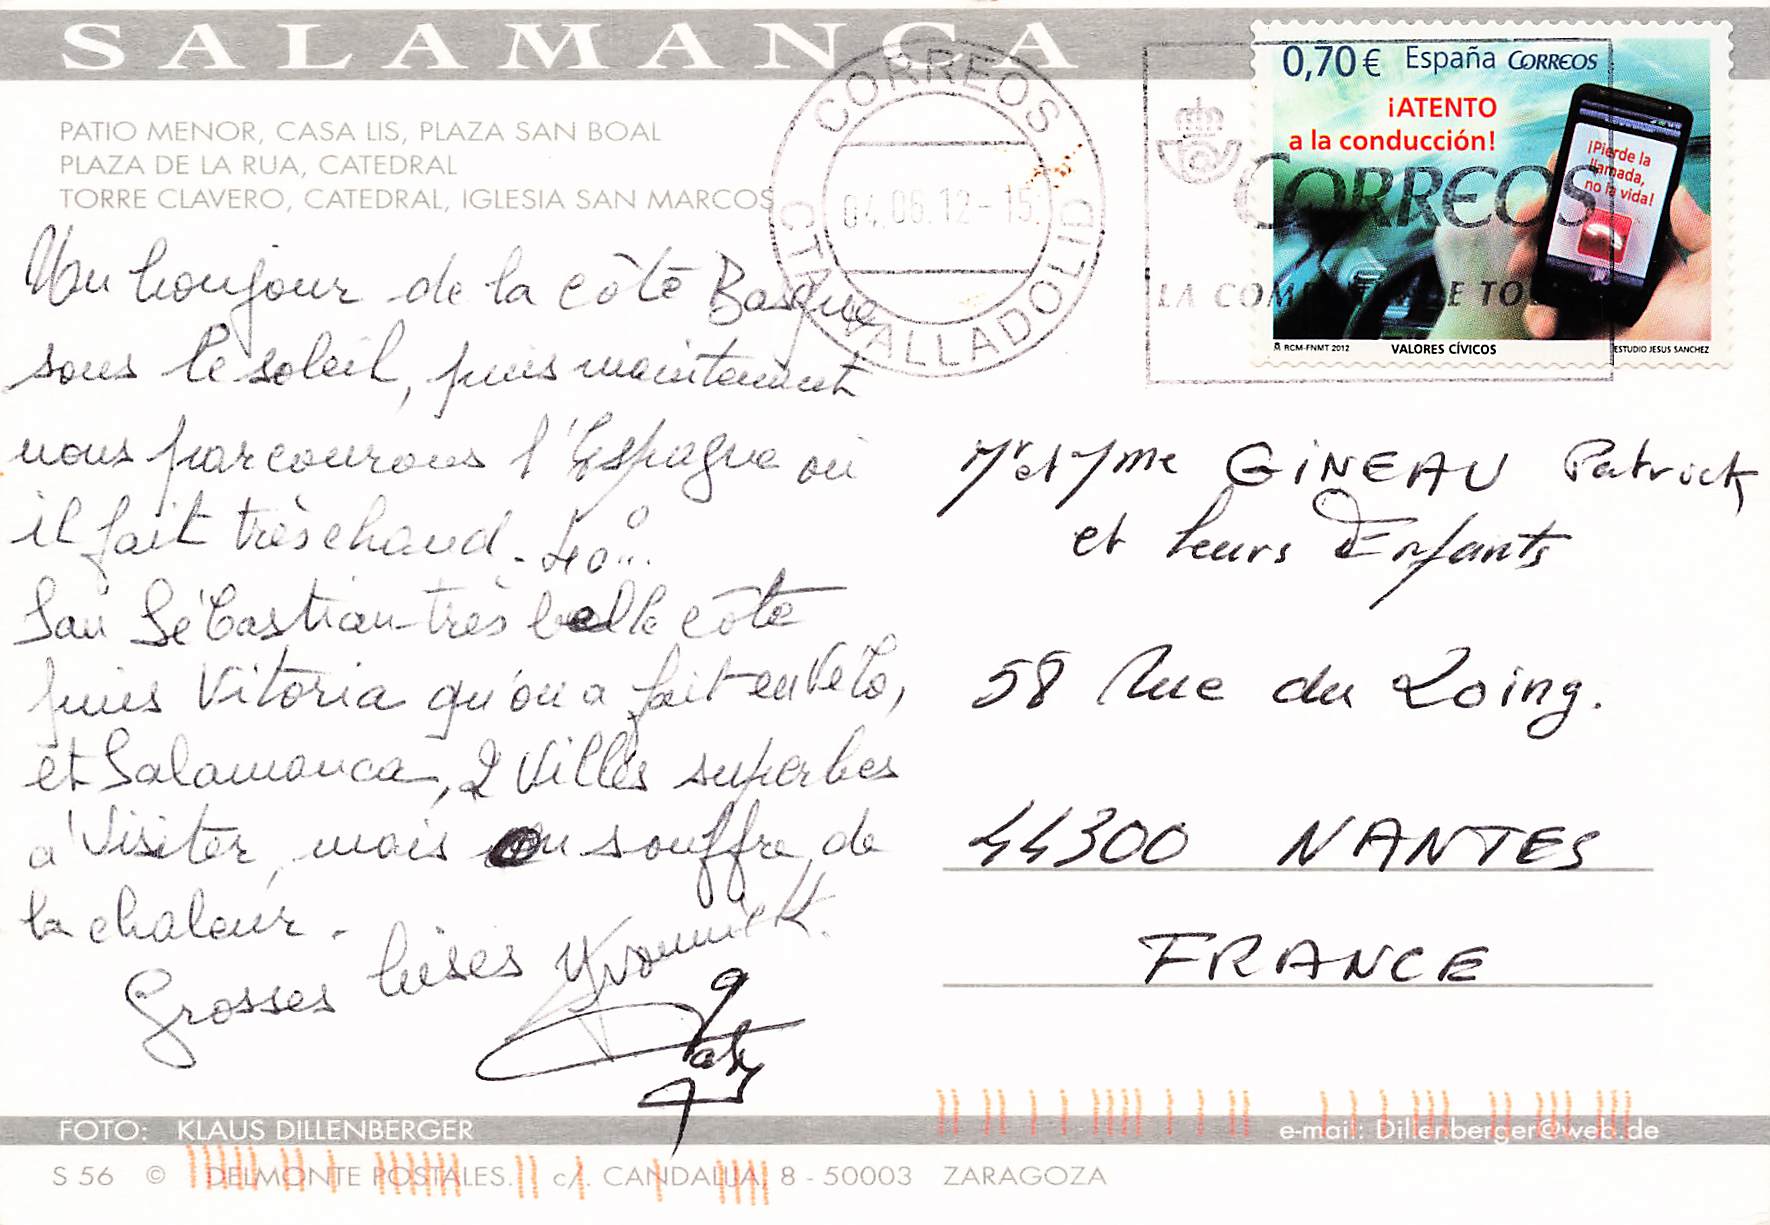 SALAMANCA
PATIO MENOR, CASA LIS, PLAZA SAN BOAL
PLAZA DE LA RUA, CATEDRAL
TORRE CLAVERO, CATEDRAL, IGLESIA SAN MARCOS
CORREOS
04.06.12-15
CTA VALLADOLID
0,70 € España CORREOS
¡ATENTO
a la conducción!
¡Pierde la
llamada,
no la vida!
CORREOS
LA COM DE TO
RCM-FNMT 2012 VALORES CÍVICOS ESTUDIO JESUS SANCHEZ
Un bonjour de la côte Basque
sous le soleil, puis maintenant
nous parcourons l'Espagne où
il fait très chaud - 40°...
San Sébastian très belle côte
puis Vitoria qu'on a fait en Vélo,
et Salamanca, 2 Villes superbes
a Visiter, mais on souffre de
la chaleur.
Grosses bises Yvonnick.
Paty
Mr et Mme GINEAU Patrick
et leurs Enfants
58 Rue du Loing.
44300 NANTES
FRANCE
FOTO: KLAUS DILLENBERGER
e-mail: Dillenberger@web.de
S 56 © DELMONTE POSTALES. c/. CANDALIJA, 8 - 50003 ZARAGOZA